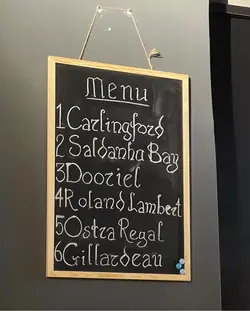 Menu
1Carlingford
2 Saldanha Bay
3Dooriel
4Roland Lambert
5Ostra Regal
6Gillardeau